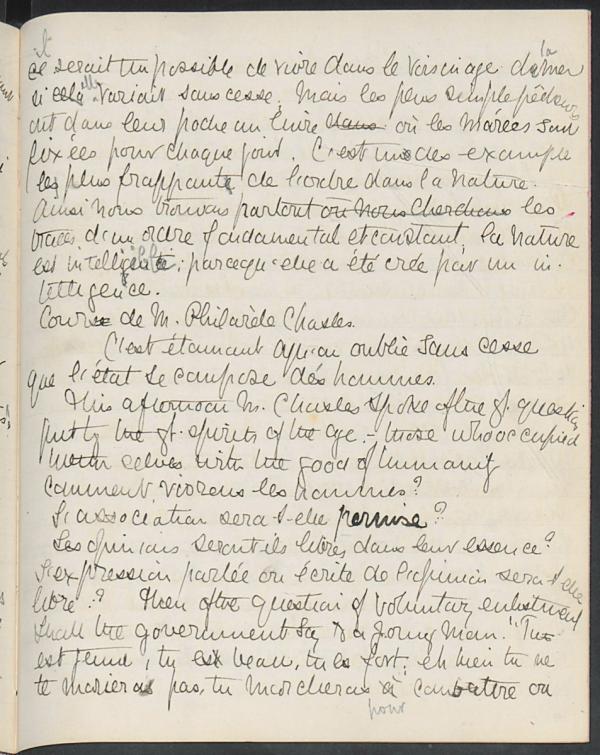 il
ce serait impossible de vivre dans le voisinage de la mer
si cela elle variait sans cesse. Mais les plus simple pêcheurs
ont dans leur poche un livre dans où les Marées sont
fixées pour chaque jour. C'est un des example
les plus frappants de l'ordre dans la nature.
Ainsi nous trouvons partout ou nous cherchons les
traces d'un ordre fondamental et constant. la Nature
est intelligente; parceque elle a été crée par un in-
telligence.
Cours de M. Philarète Chasles.
C'est étonnant qu'on oublie sans cesse
que l'état se compose des hommes.
This afternoon M. Chasles spoke of the gt. question
put by the gt. spirits of the age. - those who occupied
themselves with the good of humanity
Comment vivrons les hommes?
L'association sera-t-elle permise?
Les opinions seront ils libres dans leur essence?
L'expression parlée ou écrite de l'opinion sera-t-elle
libre? Then of the question of voluntary enlistment
Shall the government say to a young man. "Tu
est jeune, tu es beau, tu es fort. eh bien tu ne
te marieras pas, tu marcheras à combattre ou
pour